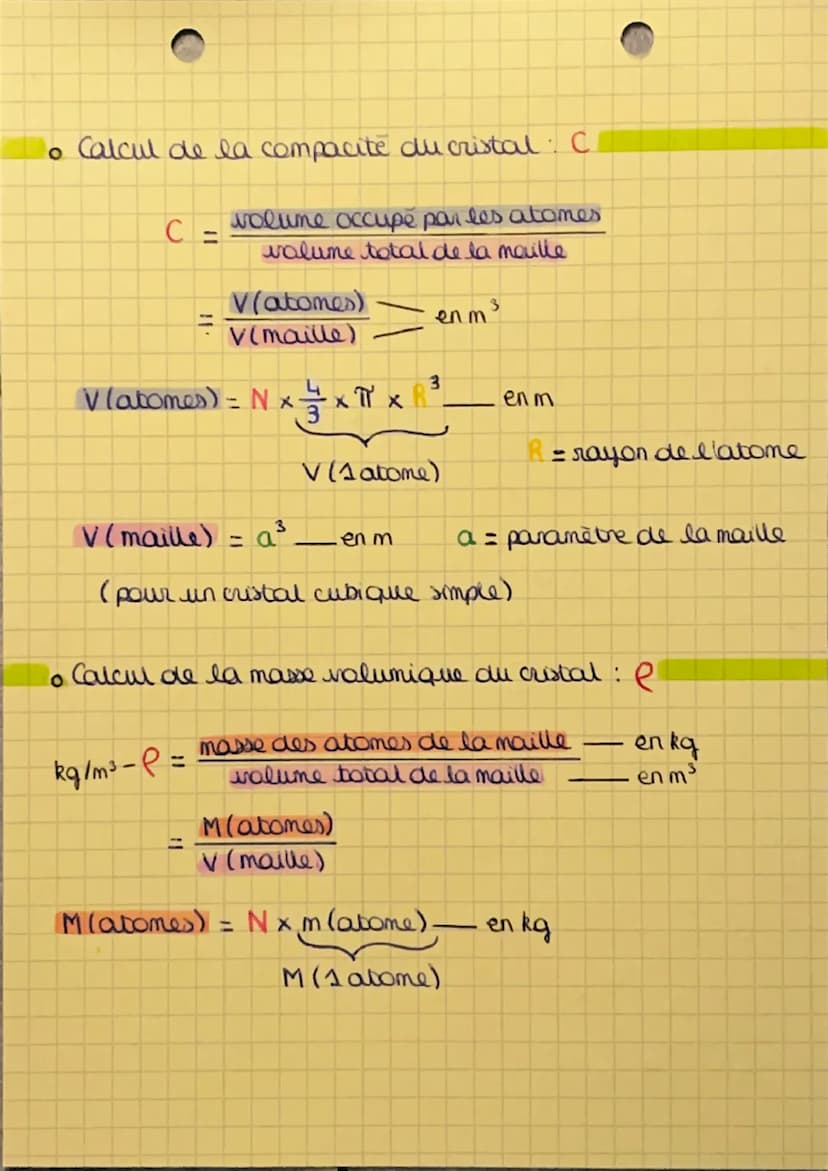 o Calcul de la compacité du cristal : C
C = volume occupé par les atomes / volume total de la maille
= V(atomes) / V(maille) en m³
V(atomes) = N × 4/3 × π × R³ — en m
V(1 atome)
R = rayon de l'atome
V(maille) = a³ — en m a = paramètre de la maille
(pour un cristal cubique simple)
o Calcul de la masse volumique du cristal : ρ
kg/m³ - ρ = masse des atomes de la maille — en kg / volume total de la maille — en m³
= M(atomes) / V(maille)
M(atomes) = N × m(atome) — en kg
M(1 atome)